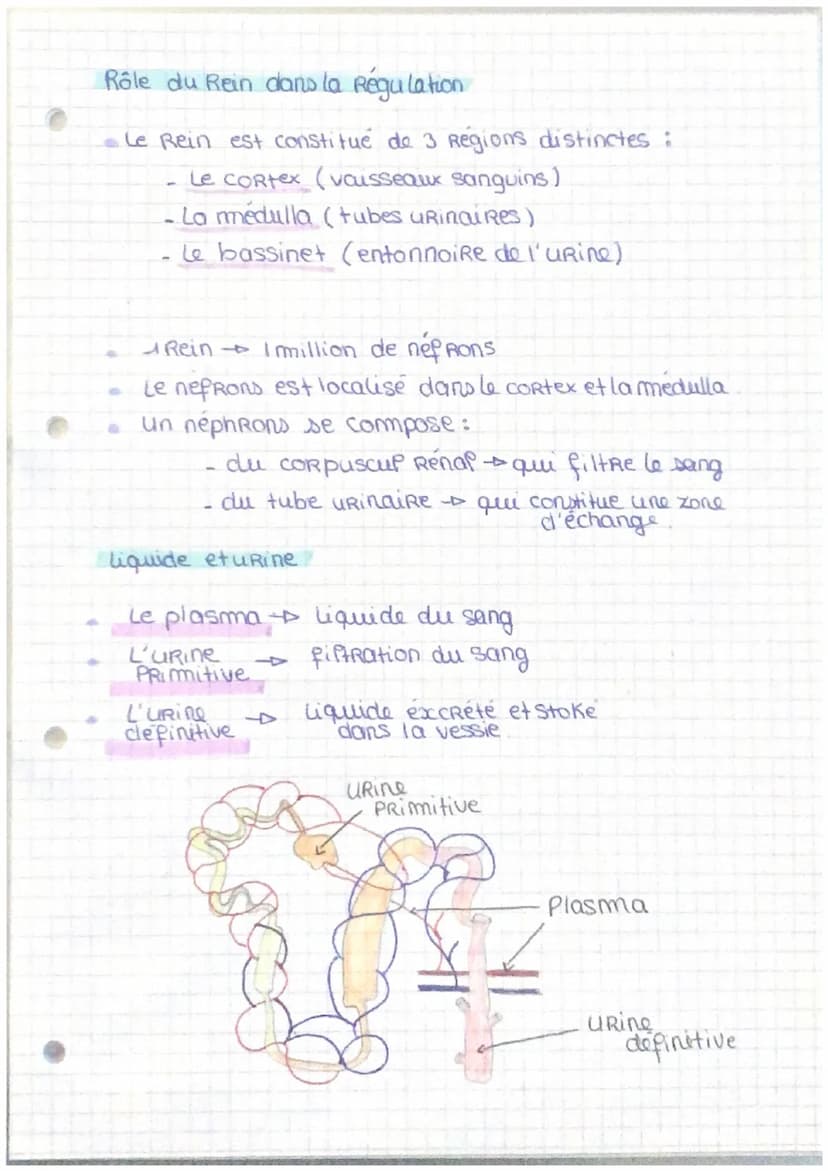 Rôle du Rein dans la Régulation
Le Rein est constitué de 3 Régions distinctes :
- Le cortex (vaisseaux sanguins)
- La médulla (tubes urinaires)
- Le bassinet (entonnoire de l'urine)
1 Rein → 1 million de néfrons
Le néfrons est localisé dans le cortex et la médulla
un néphrons se compose :
- du corpuscul Rénal → qui filtre le sang
- du tube urinaire → qui constitue une zone
d'échange.
Liquide et urine
Le plasma → Liquide du sang
L'urine → filtration du sang
Primitive
L'urine → Liquide éxcrété et stoké
définitive dans la vessie.
urine
Primitive
Plasma
urine
définitive